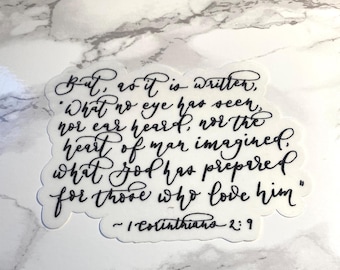 But, as it is written,
"What no eye has seen,
nor ear heard, nor the
heart of man imagined,
what God has prepared
for those who love him"
~ 1 Corinthians 2:9